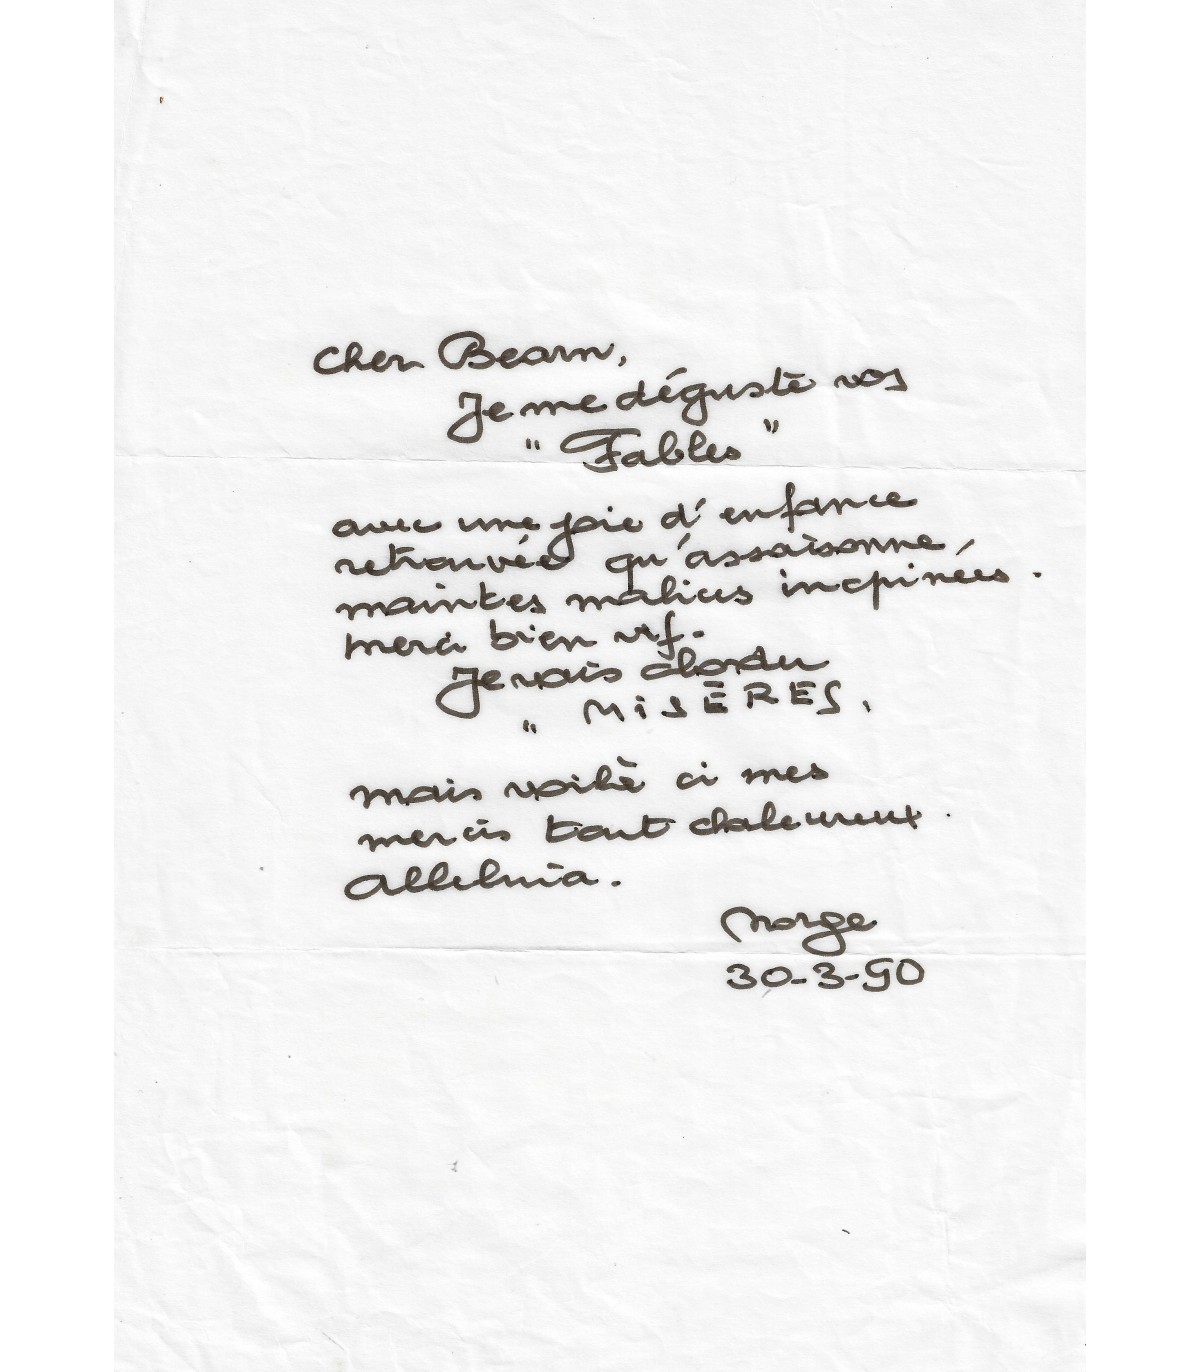 Cher Bearn,
Je me déguste vos
" Fables "
avec une joie d'enfance
retrouvée qu'assaisonne,
maintes malices inopinées.
merci bien vif.
Je vais aborder
" MISÈRES,
mais voilà ci mes
mercis tout chaleureux.
Alleluia.
Norge
30-3-90